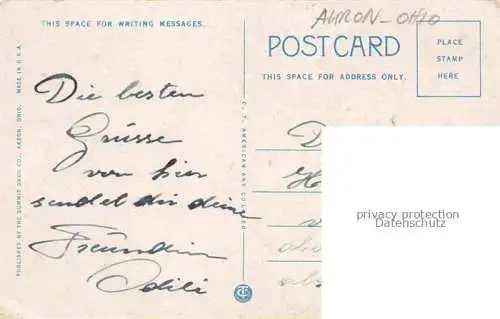 THIS SPACE FOR WRITING MESSAGES.
AKRON - OHIO
POSTCARD
THIS SPACE FOR ADDRESS ONLY.
PLACE
STAMP
HERE
Die besten
Grüsse
von hier
sendet dir deine
Freundin
Odili
PUBLISHED BY THE SUMMIT DRUG CO., AKRON, OHIO. MADE IN U.S.A.
C. T. AMERICAN ART COLORED
privacy protection
Datenschutz